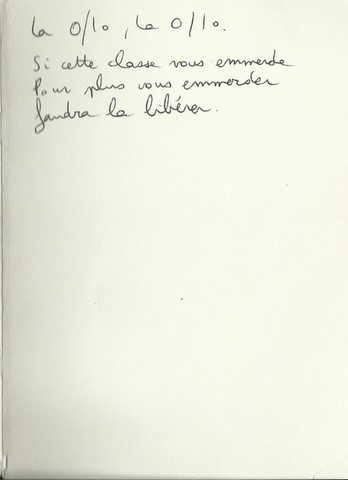 La 0/10, la 0/10.
Si cette classe vous emmerde
Pour plus vous emmerder
faudra la libérer.